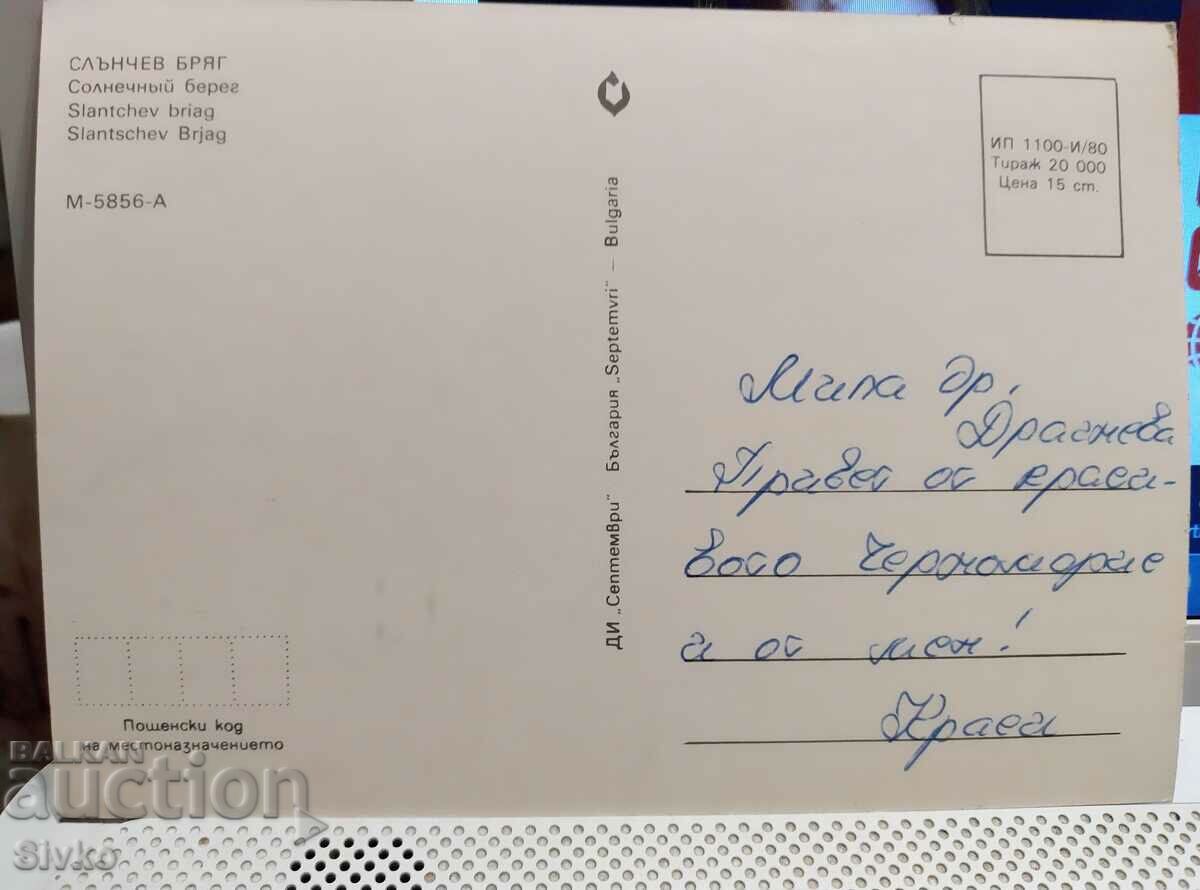 СЛЪНЧЕВ БРЯГ
Солнечный берег
Slantchev briag
Slantschev Brjag
М-5856-А
ДИ „Септември" България „Septemvri" – Bulgaria
ИП 1100-И/80
Тираж 20 000
Цена 15 ст.
Мила др.
Драгнева
Привет от краси-
вото Черноморие
и от мен!
Краси
Пощенски код
на местоназначението
BALKAN
auction
Sivko